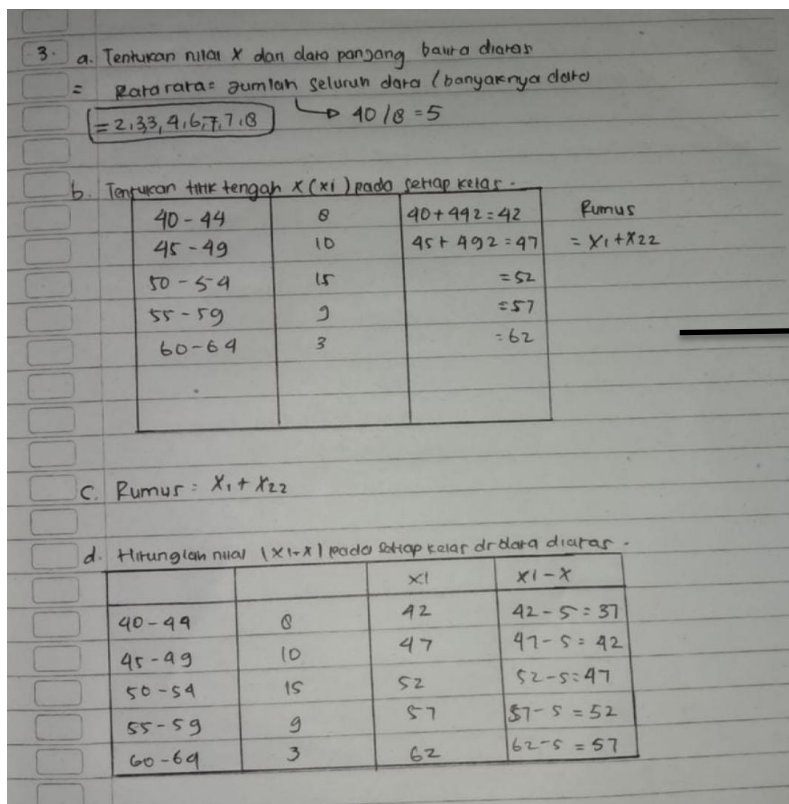 3. a. Tentukan nilai X dan data panjang baut diatas
= Rata rata = Jumlah seluruh data / banyaknya data
= 2,33,4,6,7,7,8 → 40/8 = 5
b. Tentukan titik tengah x (xi) pada setiap kelas.
40 - 44 8 40 + 442 = 42 Rumus
45 - 49 10 45 + 492 = 47 = X1 + X22
50 - 54 15 = 52
55 - 59 9 = 57
60 - 64 3 = 62
C. Rumus : X1 + X22
d. Hitunglah nilai |X1-X| pada setiap kelas dr data diatas.
X1 X1 - X
40 - 44 8 42 42 - 5 = 37
45 - 49 10 47 47 - 5 = 42
50 - 54 15 52 52 - 5 = 47
55 - 59 9 57 57 - 5 = 52
60 - 64 3 62 62 - 5 = 57